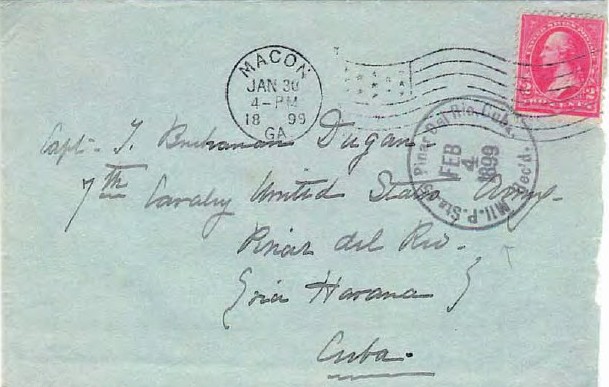 MACON
JAN 30
4-PM
18 99
GA
UNITED STATES
2 2
TWO CENTS
Mil. P. Sta. Pinar Del Rio, Cuba. Rec'd.
FEB
4
1899
Capt. T. Buchanan Dugan.
7th Cavalry United States Army.
Pinar del Rio.
(via Havana)
Cuba.